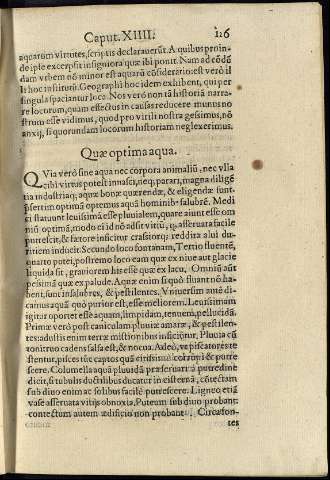 Caput. XIIII. 126
aquarum virtutes, scriptis declarauerūt. A quibus proin-
de ipse excerpsit insigniora quæ ibi ponit. Nam ad cōdē
dam vrbem nō minor est aquarū cōsideratio: est verò il
li hoc institutū. Geographi hoc idem exhibent, qui per
singula spaciantur loca. Nos verò non tā historiā narra-
re locorum, quam effectus in causas reducere munus no
strum esse vidimus, quod pro virili nostra gessimus, nō
anxij, si quorundam locorum historiam neglexerimus.
Quæ optima aqua.
QVia verò sine aqua nec corpora animaliū, nec vlla
cibi virtus potest innasci, neq; parari, magna diligē
tia industriaq; aquæ bonæ quærendæ, & eligendæ sunt.
optimā optemus aquā hominib⁹ salubrē. Medi
ci statuunt leuissimā esse pluuialem, quare aiunt esse om
niū optimā, modo ei id nō adsit vitiū, asseruata facile
putrescit, & fætore inficitur crassiorq; reddita alui du-
ritiem inducit. Secundo loco fontanam, Tertio fluentē,
quarto putei, postremo loco eam quæ ex niue aut glacie
liquida fit, grauiorem his esse quæ ex lacu, Omniū aūt
pessimā quæ ex palude. Aquæ enim si quò fluant nō ha-
bent, sunt insalubres, & pestilentes. Vniuersim autē di-
camus aquā quò purior est, esse meliorem. Leuissimam
igitur oportet esse aquam, limpidam, tenuem, pellucidā.
Primæ verò post caniculam pluuiæ amaræ, & pestilen-
tes: adustis enim terræ missionibus inficiūtur, Pluuia cū
tonitruo cadens salsa est, & noxia. Adeò, vt piscatores te-
stentur, pisces tūc captos quā citissimè corrūpi & putre
scere. Columella aquā pluuiā præseruari à putredine
dicit, si tubulis ductilibus ducatur in cisternā, cōtectam
sub diuo enim ac solibus facilè putrescere. Ligneo etiā
vase asseruata vitijs obnoxia. Puteum sub diuo probant:
contectum autem ædificio non probant Circa fon-
tes